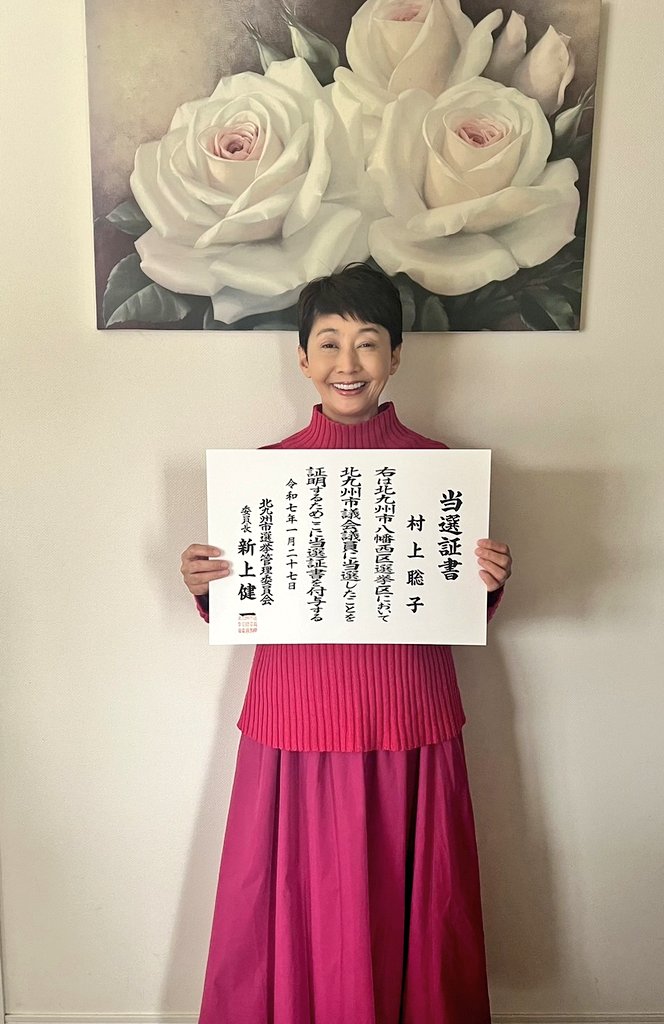 当選証書
村上聡子
右は北九州市八幡西区選挙区において
北九州市議会議員に当選したことを
証明するためここに当選証書を付与する
令和七年一月二十七日
北九州市選挙管理委員会
委員長 新上健一